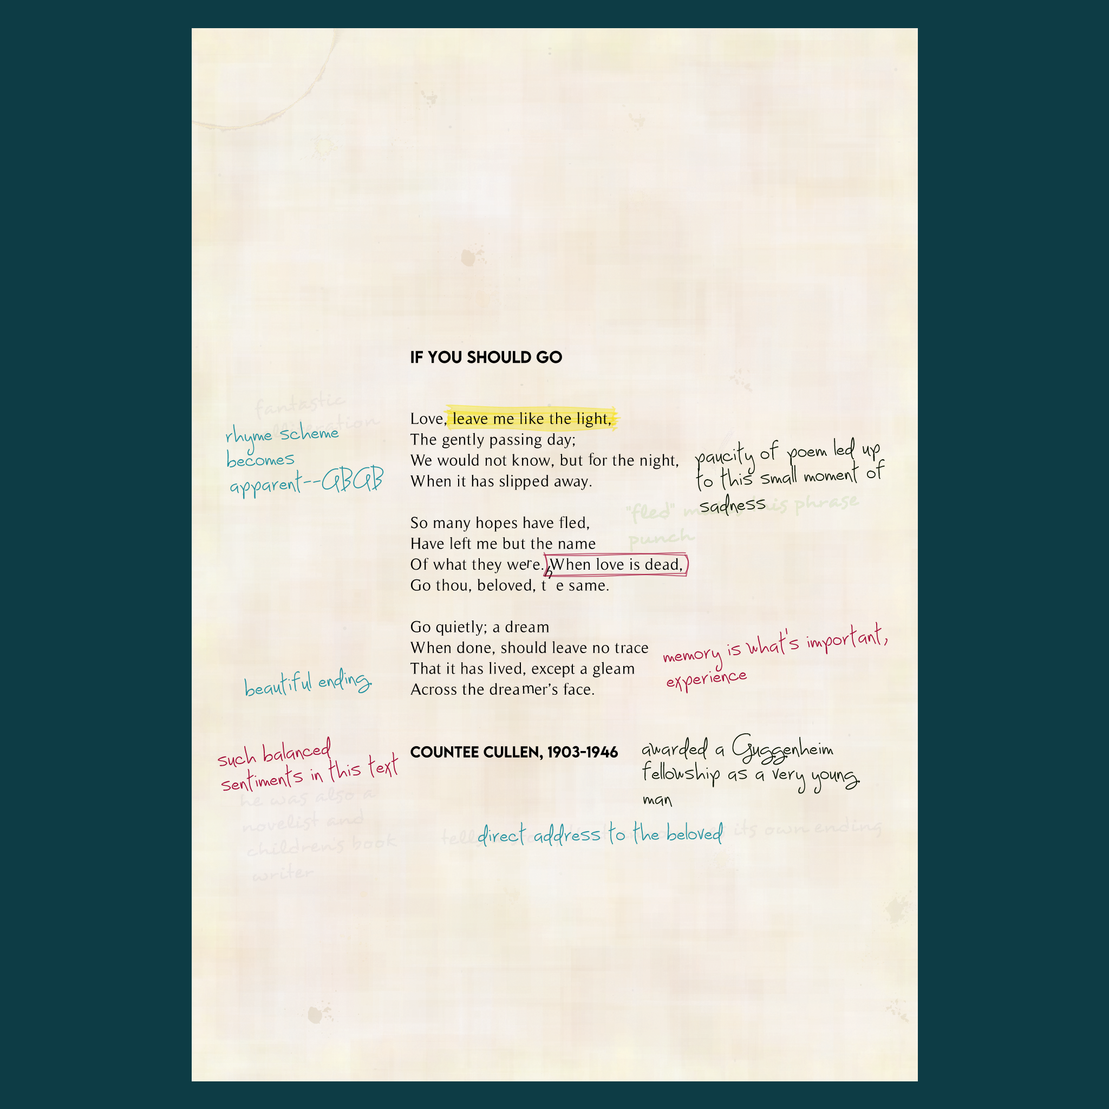 IF YOU SHOULD GO
fantastic
Love, leave me like the light,
The gently passing day;
We would not know, but for the night,
When it has slipped away.
rhyme scheme
becomes
apparent--ABAB
paucity of poem led up
to this small moment of
sadness
"fled" is phrase
punch
So many hopes have fled,
Have left me but the name
Of what they were. When love is dead,
Go thou, beloved, the same.
Go quietly; a dream
When done, should leave no trace
That it has lived, except a gleam
Across the dreamer's face.
memory is what's important,
experience
beautiful ending
such balanced
sentiments in this text
COUNTEE CULLEN, 1903-1946
awarded a Guggenheim
fellowship as a very young
man
he was also a
novelist and
children's book
writer
direct address to the beloved
its own ending